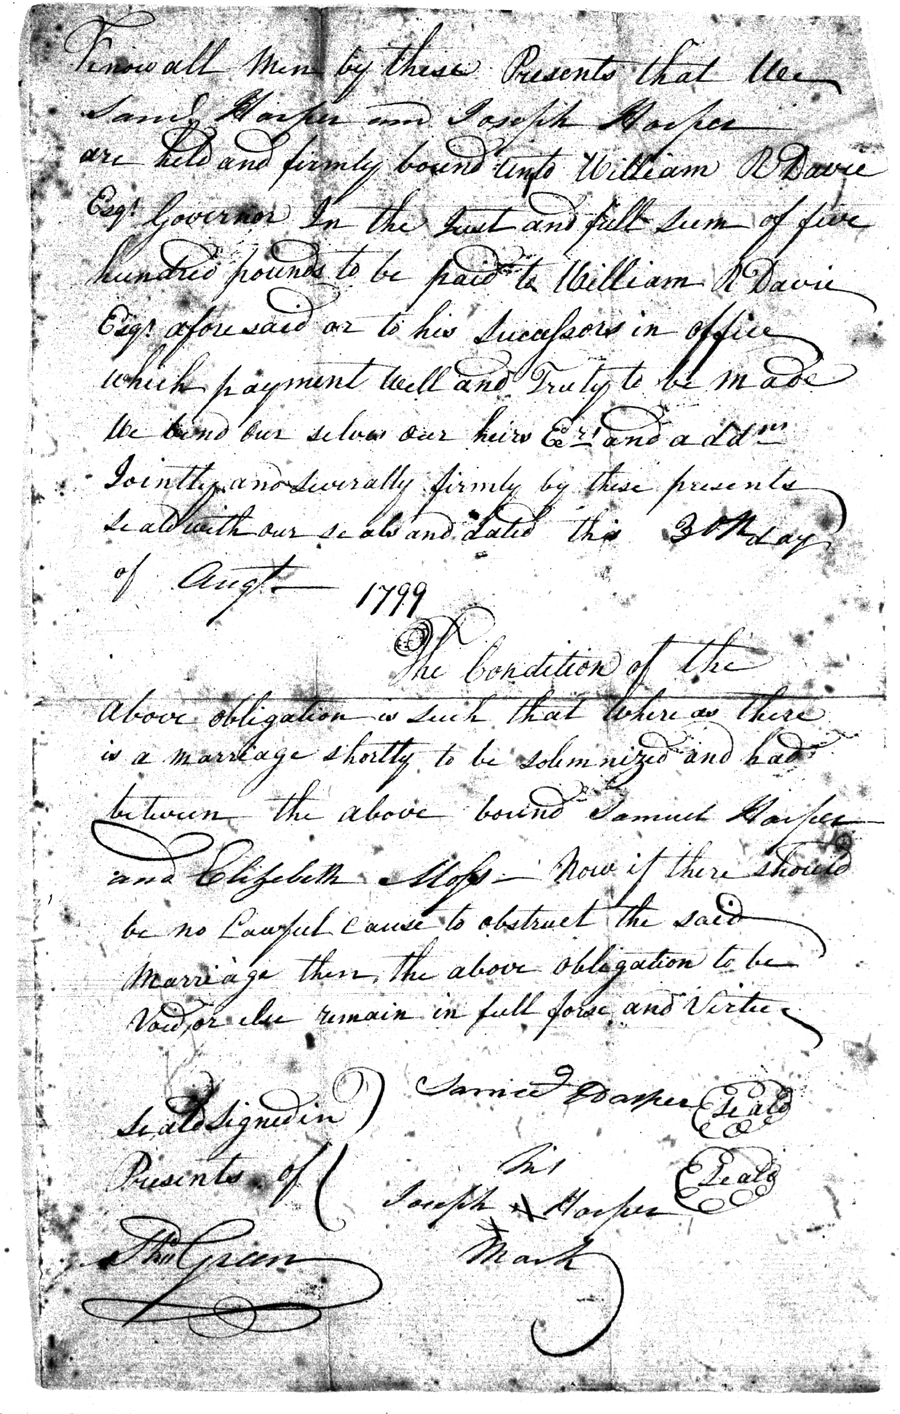 Know all Men by these Presents that We
Saml Harper and Joseph Harper
are held and firmly bound unto William R Davie
Esqr Governor In the Just and full Sum of five
hundred pounds to be paid to William R Davie
Esqr aforesaid or to his Successors in office
Which payment Well and Truly to be made
We bind our selves our heirs Exrs and addmrs
Jointly and Severally firmly by these presents
Seald with our seals and dated this 30th day
of Augt 1799
The Condition of the
above obligation is such that whereas there
is a marriage shortly to be solemnized and had
between the above bound Samuel Harper
and Elizabeth Moss Now if there should
be no Lawful cause to obstruct the said
Marriage then the above obligation to be
Void, or else remain in full forse and Virtue
Seald Signed in
Presents of
Samuel Harper Seald
his
Joseph X Harper Seald
Mark
Thos Green